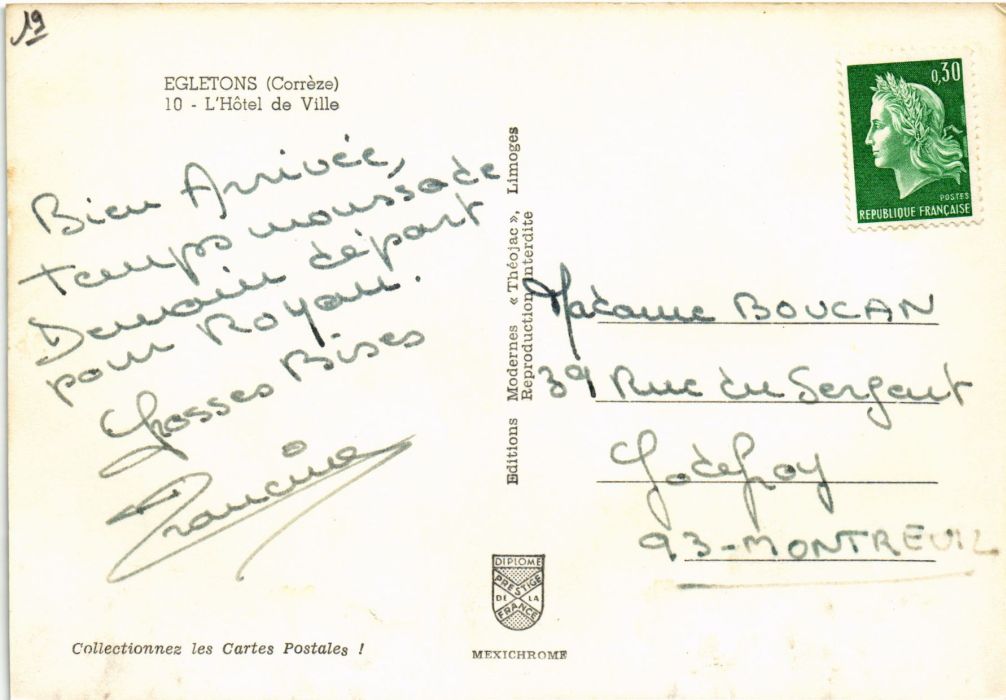 19
EGLETONS (Corrèze)
10 - L'Hôtel de Ville
Bien Arrivée,
temps moussade
Demain départ
pour Royan.
Grosses Bises
Francine
Collectionnez les Cartes Postales !
Editions Modernes « Théojac », Limoges
Reproduction interdite
DIPLOME
PRESTIGE
DE LA
FRANCE
MEXICHROME
0,30
POSTES
REPUBLIQUE FRANÇAISE
Madame BOUCAN
39 Rue du Sergent
Godefroy
93-MONTREUIL